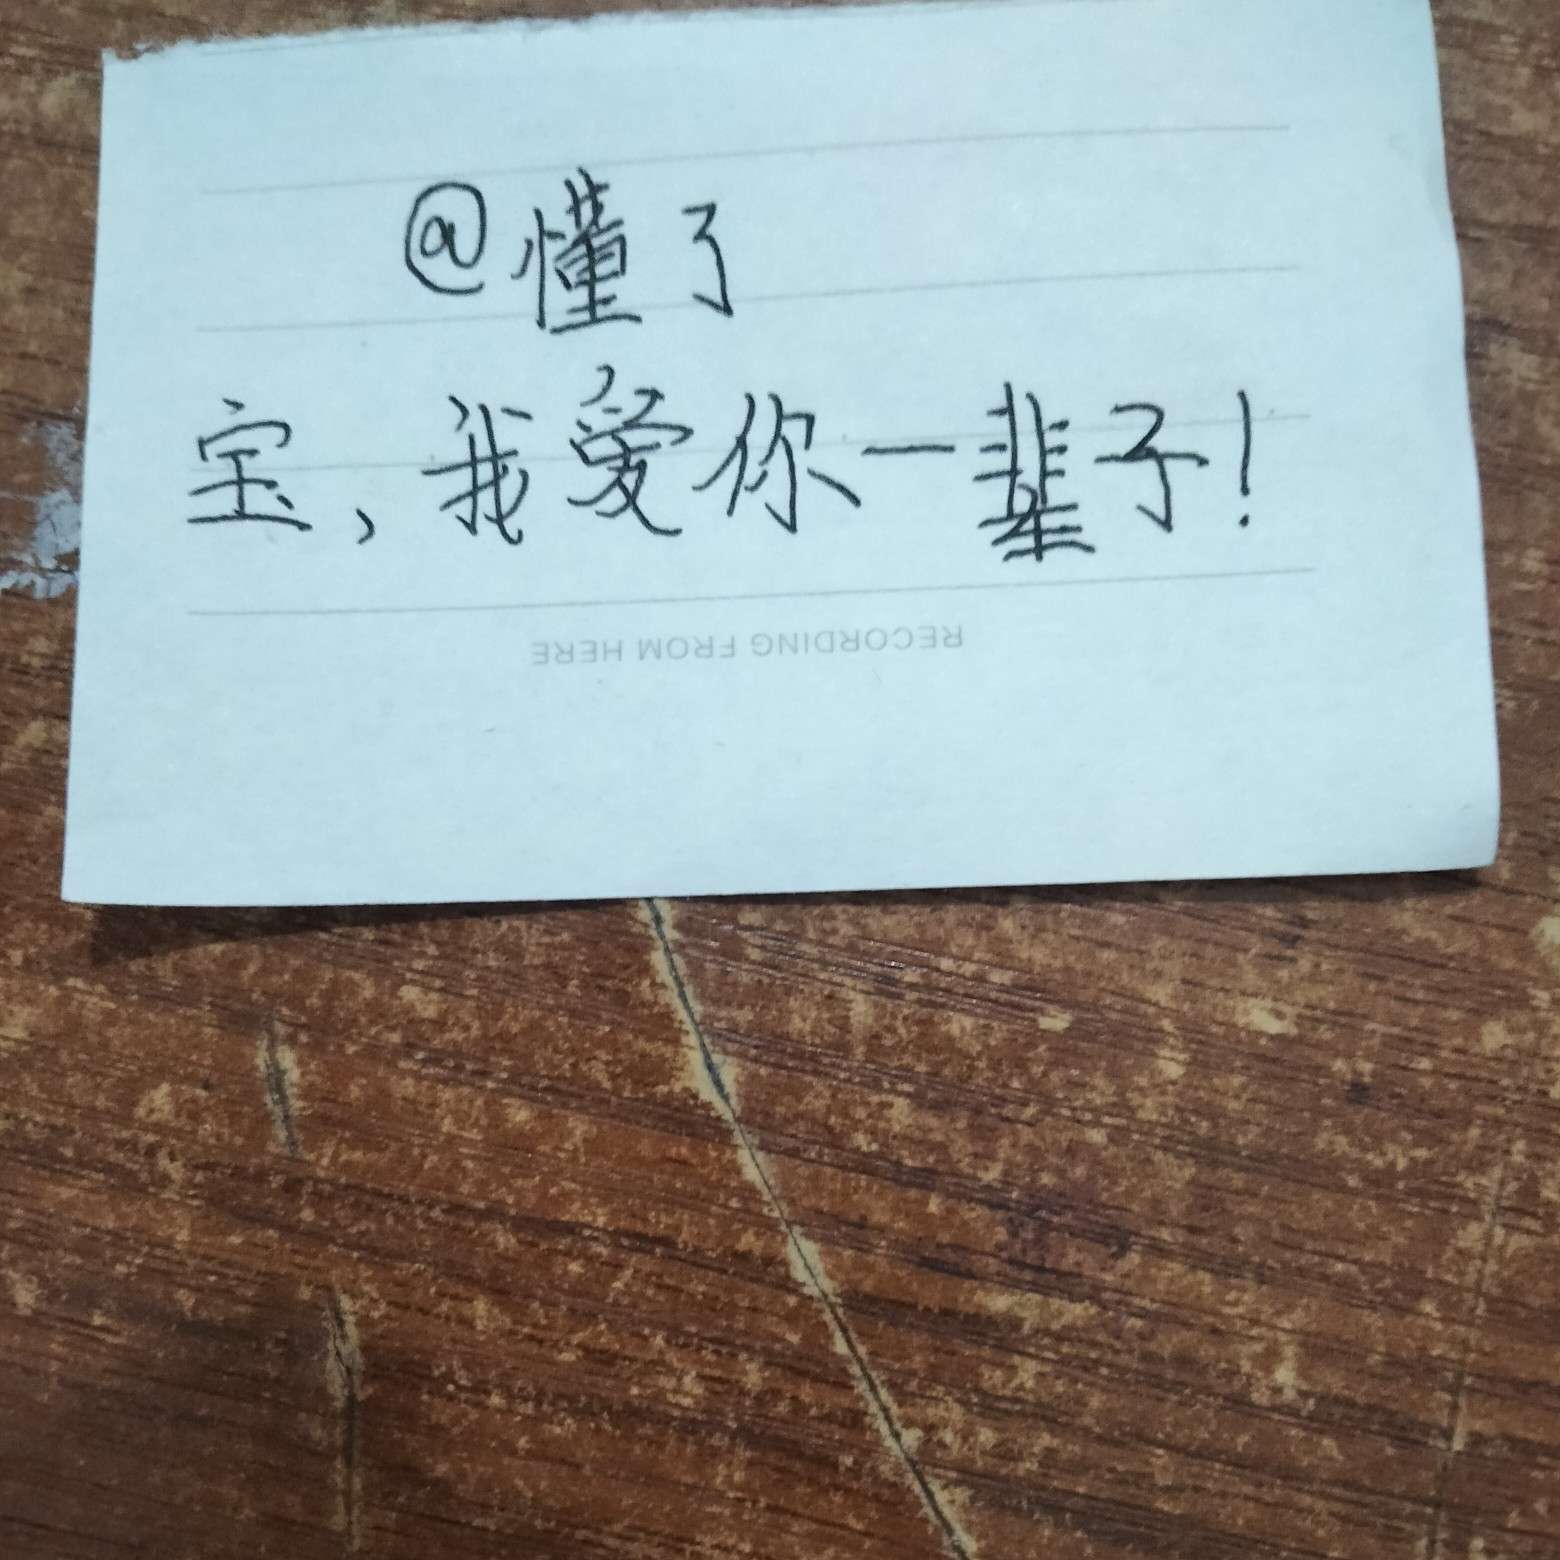 @懂了
宝，我爱你一辈子！
RECORDING FROM HERE